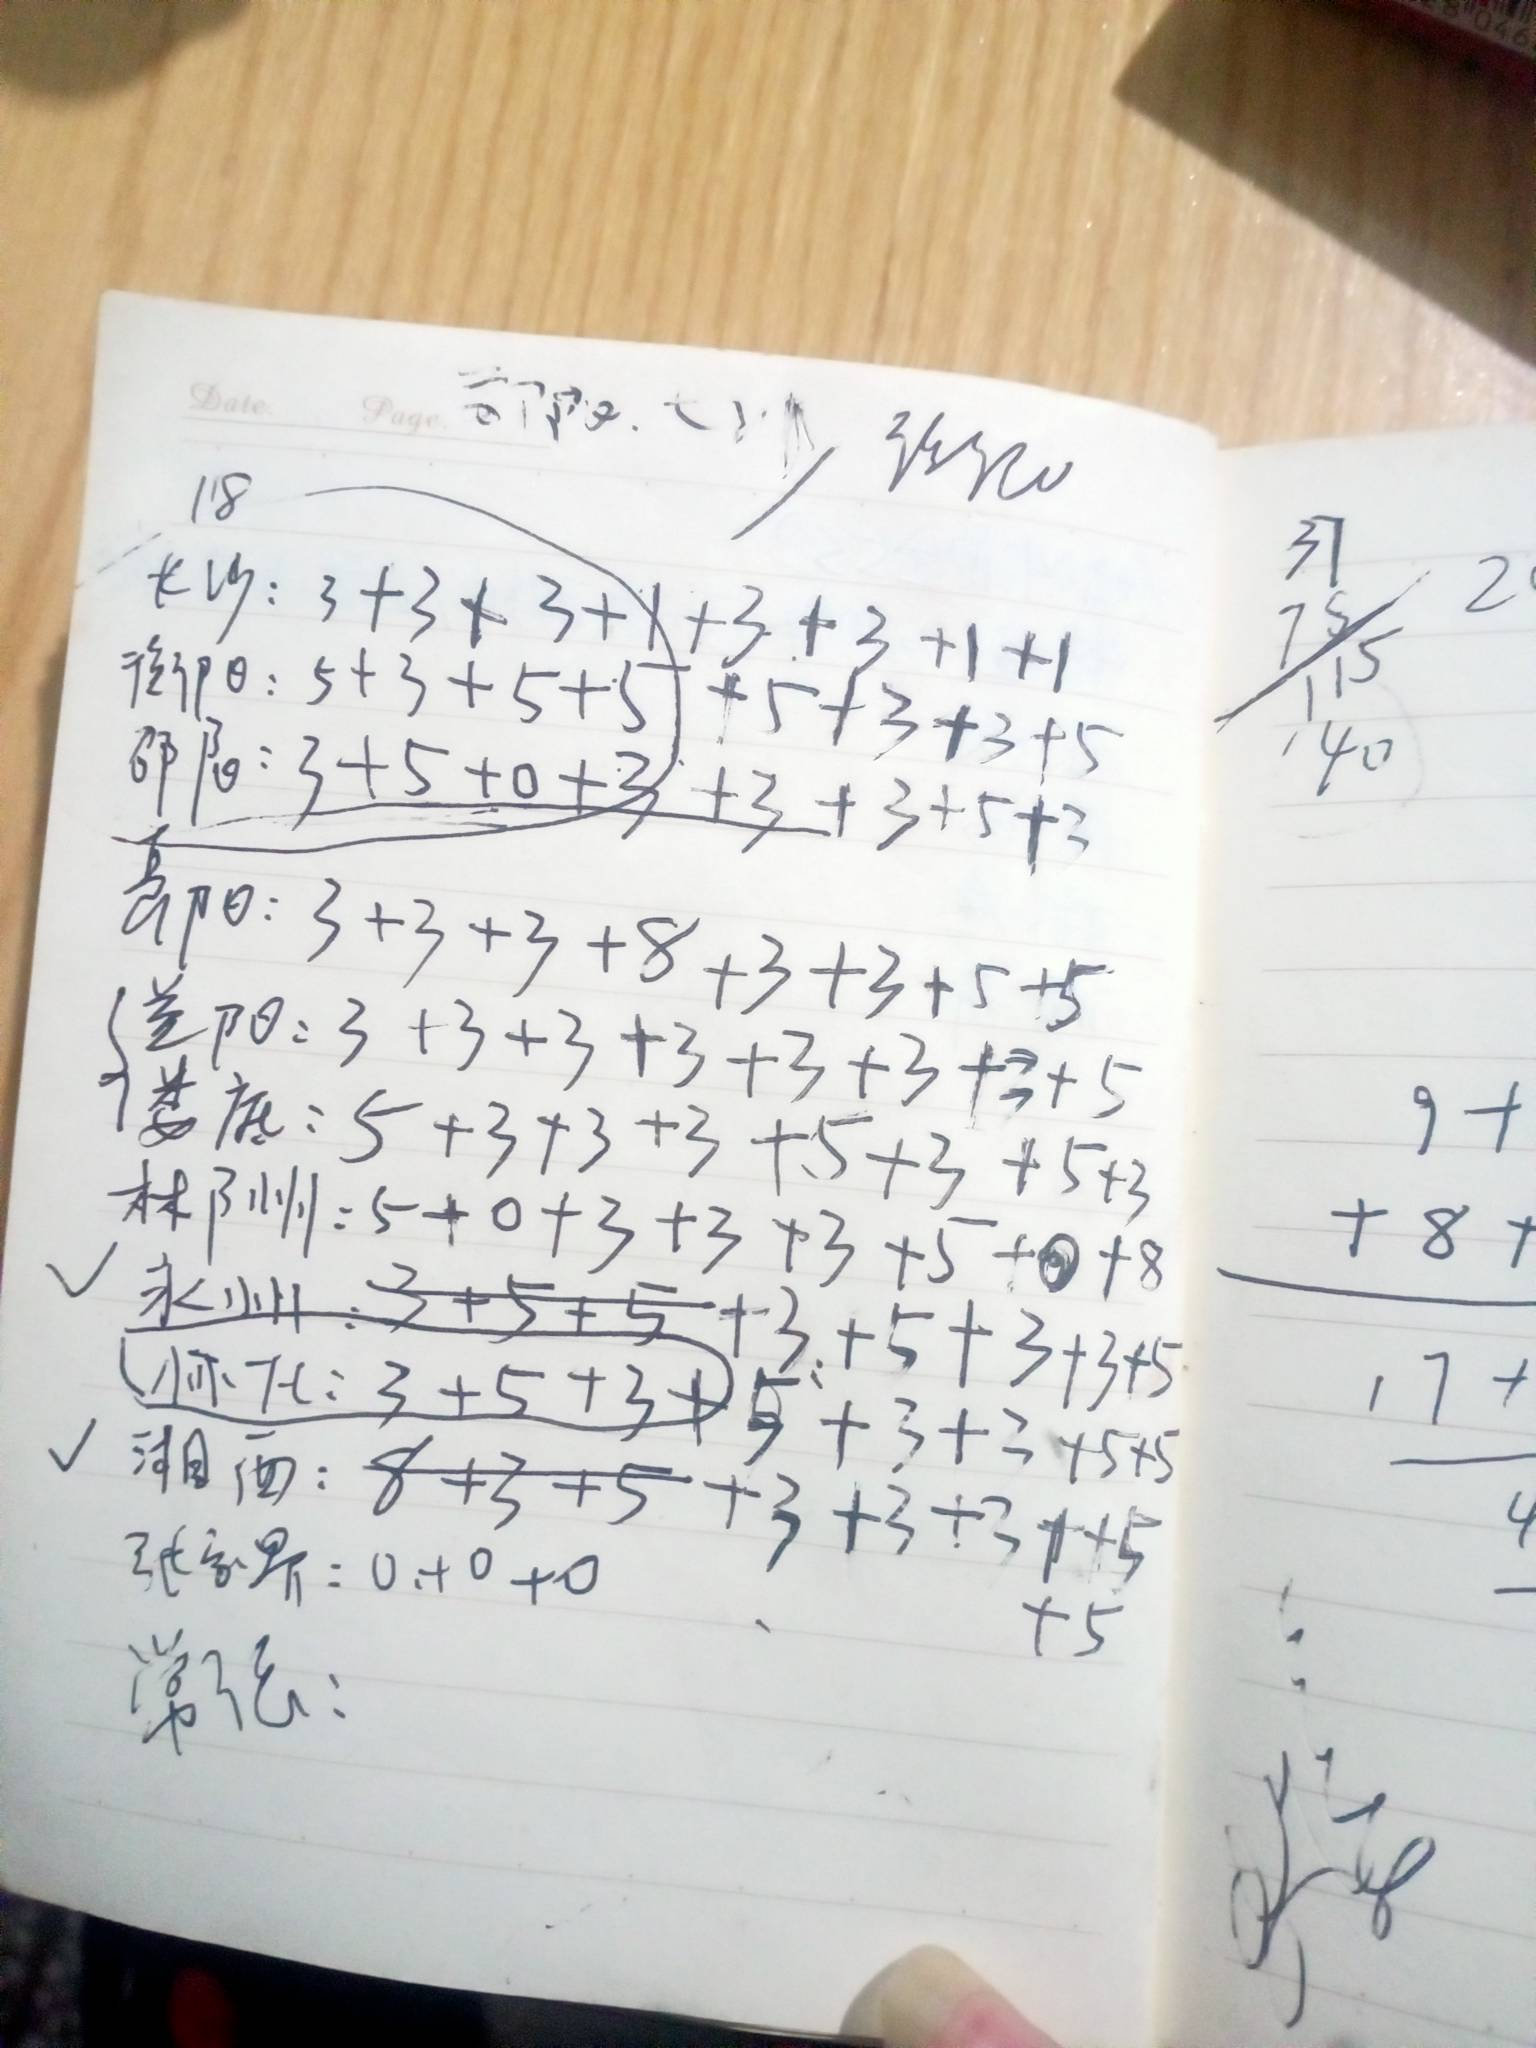 Date. Page.
118
长沙: 3+3+3+1+3+3+1+1
衡阳: 5+3+5+5+5+3+3+5
邵阳: 3+5+0+3+3+3+5+3
岳阳: 3+3+3+8+3+3+5+5
益阳: 3+3+3+3+3+3+3+5
娄底: 5+3+3+3+5+3+5+3
郴州: 5+0+3+3+3+5+0+8
✓ 永州: 3+5+5+3+5+3+3+5
怀化: 3+5+3+5+3+3+5+5
✓ 湘西: 8+3+5+3+3+3+1+5
+5
张家界: 0+0+0
常张:
37
75
115
140
9+
+8+
17+
4